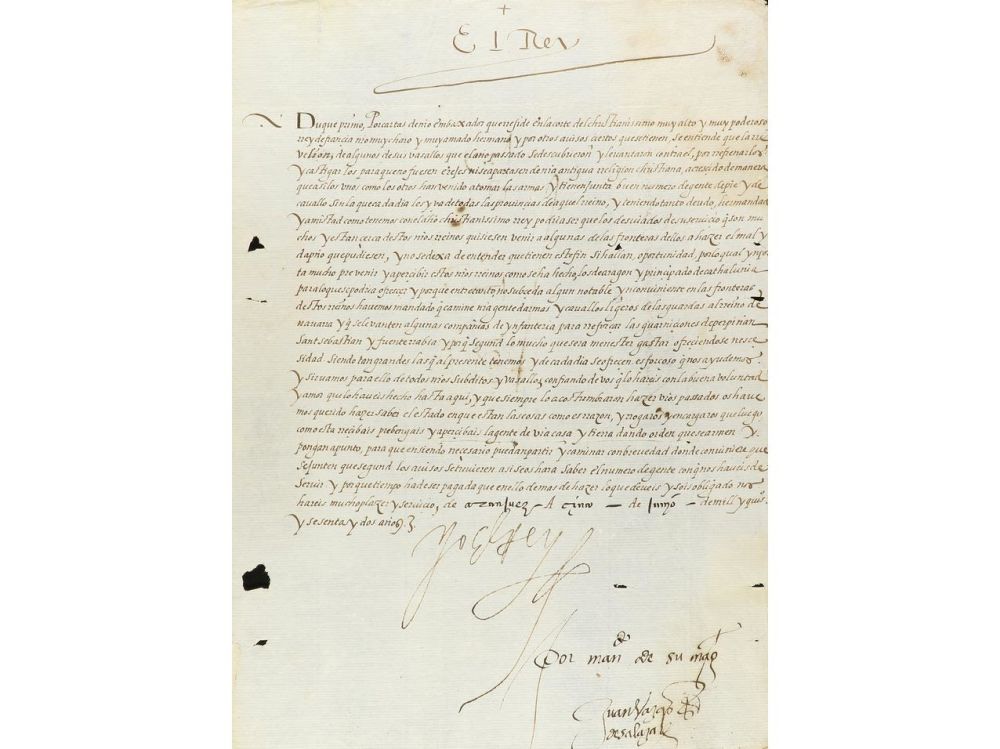 +
El Rey
Duque primo, Por cartas de nro embaxador que reside en la corte del christianissimo muy alto y muy poderoso
rey de francia nro muy charo y muy amado hermano y por otros auisos ciertos que se tienen, se entiende que la rre
uelion, de algunos de sus vasallos que el año passado se descubrieron y leuantaron contra el, por refrenarlos
y castigarlos para que no fuesen erejes ni se apartasen de nra antigua religion christiana, a crescido de manera
que asi los vnos como los otros han venido a tomar las armas y tienen junta buen numero de gente de pie y de
cauallo sin la que cada dia les va de todas las prouincias de aquel reino, y teniendo tanto deudo, hermandad
y amistad como tenemos con el dicho christianissimo rrey podria ser que los desuiados de su seruicio q son mu
chos y estan cerca destos nros reinos quisiesen venir a algunas de las fronteras dellos a hazer el mal y
daño que pudiesen, y no se dexa de entender que tienen este fin si hallan, oportunidad, por lo qual ynpor
ta mucho preuenir y apercibir estos nros reinos como se ha hecho, los de aragon y principado de cathalunia
para lo que se podria ofrescer y porque entre tanto no subceda algun notable ynconueniente en las fronteras
destos reinos hauemos mandado q camine nra gente darmas y cauallos ligeros de las guardas al reino de
nauara y q se leuanten algunas compañias de ynfanteria para reforçar las guarniciones de perpiñan
Sant sebastian y fuenterrabia y porq segund lo mucho que sera menester gastar ofreciendose nesce
sidad siendo tan grandes las q al presente tenemos y de cada dia se ofrecen es forçoso q nos ayudemos
y siruamos para ello de todos nros subditos y vasallos, confiando de vos q lo hareis con la buena voluntad
y amor que lo haueis hecho hasta aqui, y que siempre lo acostumbraron hazer vros passados os haue
mos querido hazer saber el estado en que estan las cosas como es razon, y rogaros y encargaros que luego
como esta recibais prebengais y apercibais la gente de vra casa y tierra dando orden que se armen y
pongan a punto, para que en siendo necesario puedan partir y caminar con breuedad donde conuiniere que
se junten que segund los auisos se tuuieren asi se os hara saber el numero de gente con q nos haueis de
seruir y por que tiempo ha de ser pagada que en ello demas de hazer lo que deueis y sois obligado nos
hareis mucho plazer y seruicio, de aranjuez A cinco de Junio de mill y quis
y sesenta y dos años
yo el Rey
Por mando de su magd
Juan Vazquez
de salazar